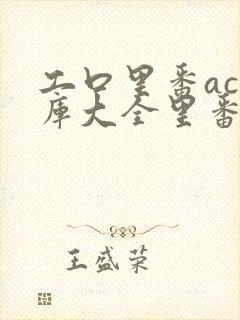 工口里番ac
库大全里番
王盛荣